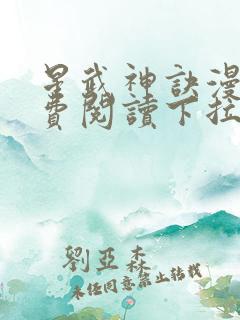 星武神訣漫
費閱讀下拉
劉亞森
未經同意禁止轉載